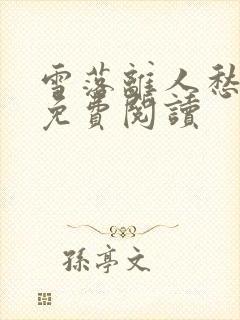 雪落離人愁
免費閱讀
孫亭文